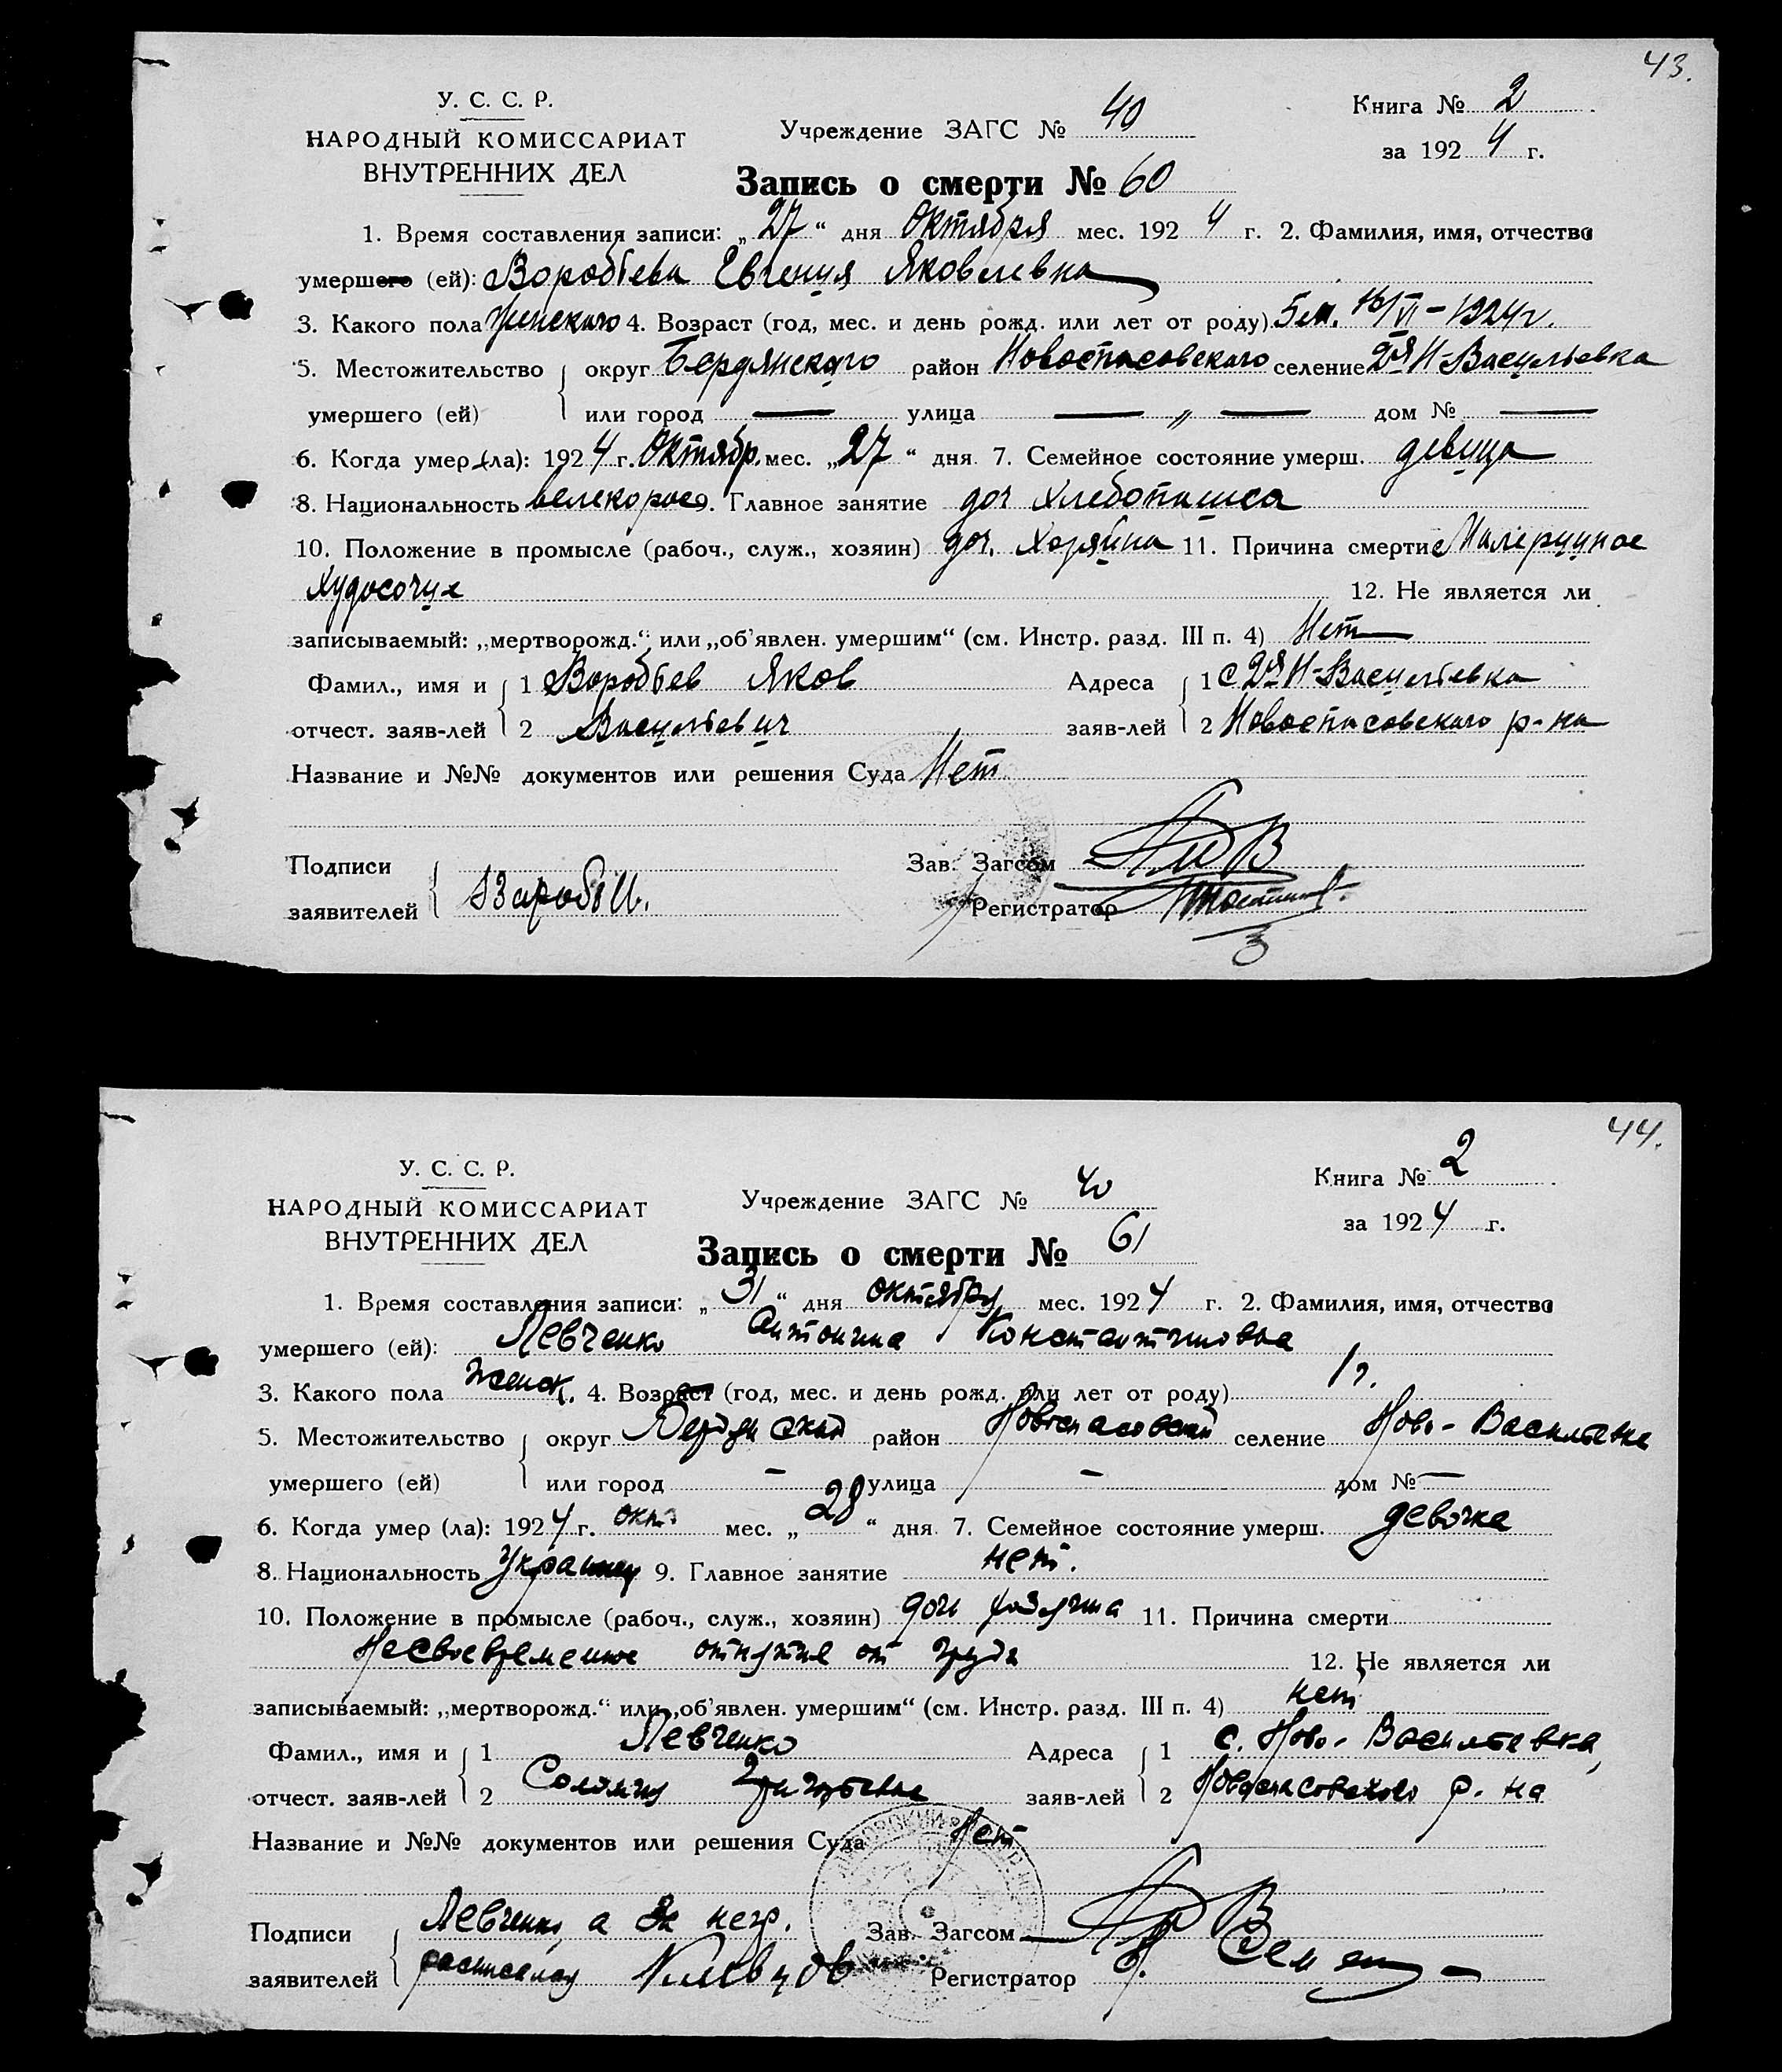 43.
У. С. С. Р.
НАРОДНЫЙ КОМИССАРИАТ
ВНУТРЕННИХ ДЕЛ
Учреждение ЗАГС № 40
Книга № 2
за 1924 г.
Запись о смерти № 60
1. Время составления записи: „27“ дня Октября мес. 1924 г. 2. Фамилия, имя, отчество
умершего (ей): Воробьева Евгения Яковлевна
3. Какого пола Женского 4. Возраст (год, мес. и день рожд. или лет от роду) 5 м. 16/VI – 1924 г.
5. Местожительство умершего (ей) округ Бердянского район Новоспасовского селение 2-я Н-Васильевка
или город — улица — „ — дом № —
6. Когда умер (ла): 1924 г. Октябр. мес. „27“ дня 7. Семейное состояние умерш. девица
8. Национальность велекорос 9. Главное занятие доч хлебопашса
10. Положение в промысле (рабоч., служ., хозяин) доч. Хозяина 11. Причина смерти Малерийное
худосочие 12. Не является ли
записываемый: „мертворожд.“ или „об'явлен. умершим“ (см. Инстр. разд. III п. 4) Нет
Фамил., имя и отчест. заяв-лей 1 Воробьев Яков
2 Васильевич
Адреса заяв-лей 1 с 2-я Н-Васильевка
2 Новоспасовского р-на
Название и №№ документов или решения Суда Нет
Подписи заявителей
Зав. Загсом
Регистратор
44.
У. С. С. Р.
НАРОДНЫЙ КОМИССАРИАТ
ВНУТРЕННИХ ДЕЛ
Учреждение ЗАГС № 40
Книга № 2
за 1924 г.
Запись о смерти № 61
1. Время составления записи: „31“ дня октября мес. 1924 г. 2. Фамилия, имя, отчество
умершего (ей): Левченко Антонина Константиновна
3. Какого пола женск. 4. Возраст (год, мес. и день рожд. или лет от роду) 1 г.
5. Местожительство умершего (ей) округ Бердянский район Новоспасовский селение Ново-Васильевка
или город – улица – дом № –
6. Когда умер (ла): 1924 г. окт. мес. „28“ дня 7. Семейное состояние умерш. девочка
8. Национальность 9. Главное занятие нет.
10. Положение в промысле (рабоч., служ., хозяин) дочь хозяина 11. Причина смерти
Несвоевременное отнятие от груди 12. Не является ли
записываемый: „мертворожд.“ или „об'явлен. умершим“ (см. Инстр. разд. III п. 4) нет
Фамил., имя и отчест. заяв-лей 1 Левченко
2 Григорьевна
Адреса заяв-лей 1 с. Ново-Васильевка,
2 Новоспасовского р-на
Название и №№ документов или решения Суда Нет
Подписи заявителей Левченко, а за негр.
расписался
Зав. Загсом
Регистратор